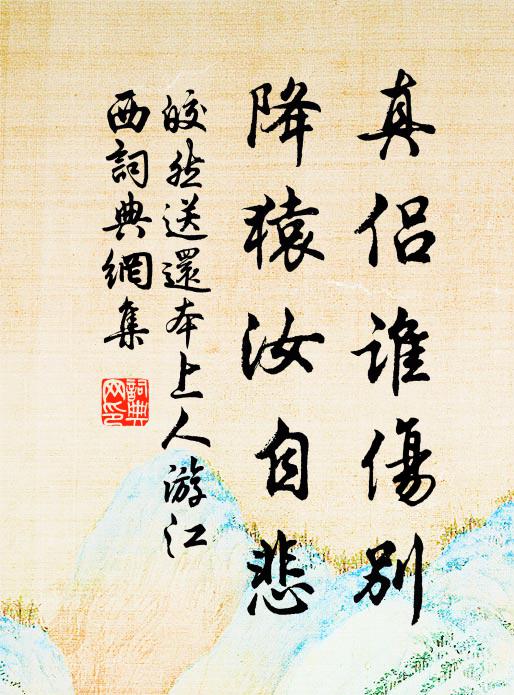 真侣谁傷别
降猿汝自悲
皎然送還本上人游江
西詞典網集
詞典
网印